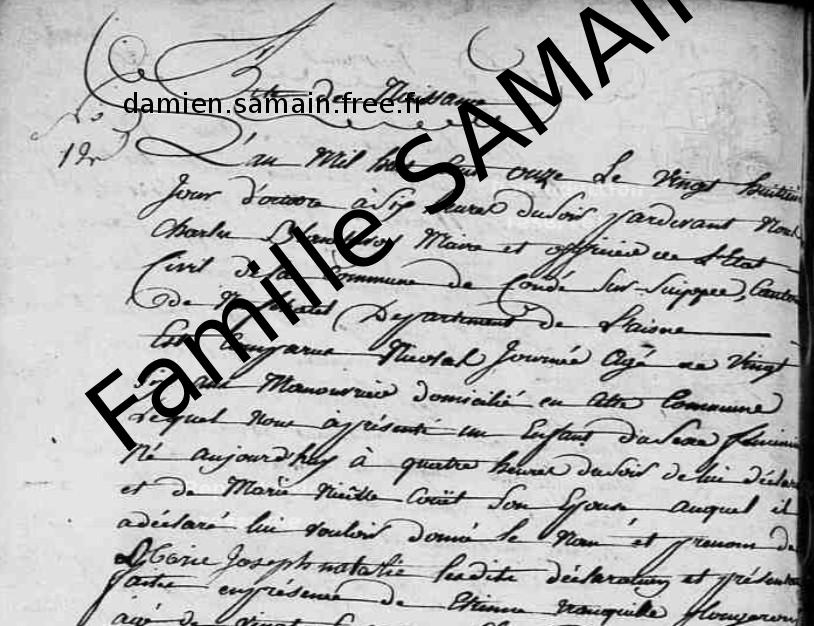 Acte de Naissance
damien.samain.free.fr
Famille SAMAIN
N.o
L'an Mil huit Cent onze Le Vingt huitiem
Jour d'octobre à Six heures du Soir pardevant Nous
Charles Maire et officier de L'Etat
Civil de la Commune de Condé Sur Suippe, Canton
de Neufchatel Departement de L'aisne
Est Comparue Nicolas Journée Agé de Vingt
Six ans Manouvrier domicilié en Cette Commune
Lequel Nous à présenté un Enfant du Sexe feminin
Né aujourd'huy à quatre heures du Soir de lui déclara
et de Marie Couët Son Epouse auquel il
a déclaré lui vouloir donné le Nom et prenom de
Joseph natalie lesdite déclaration et présenta
faitte en présence de Etienne
agé de Vingt